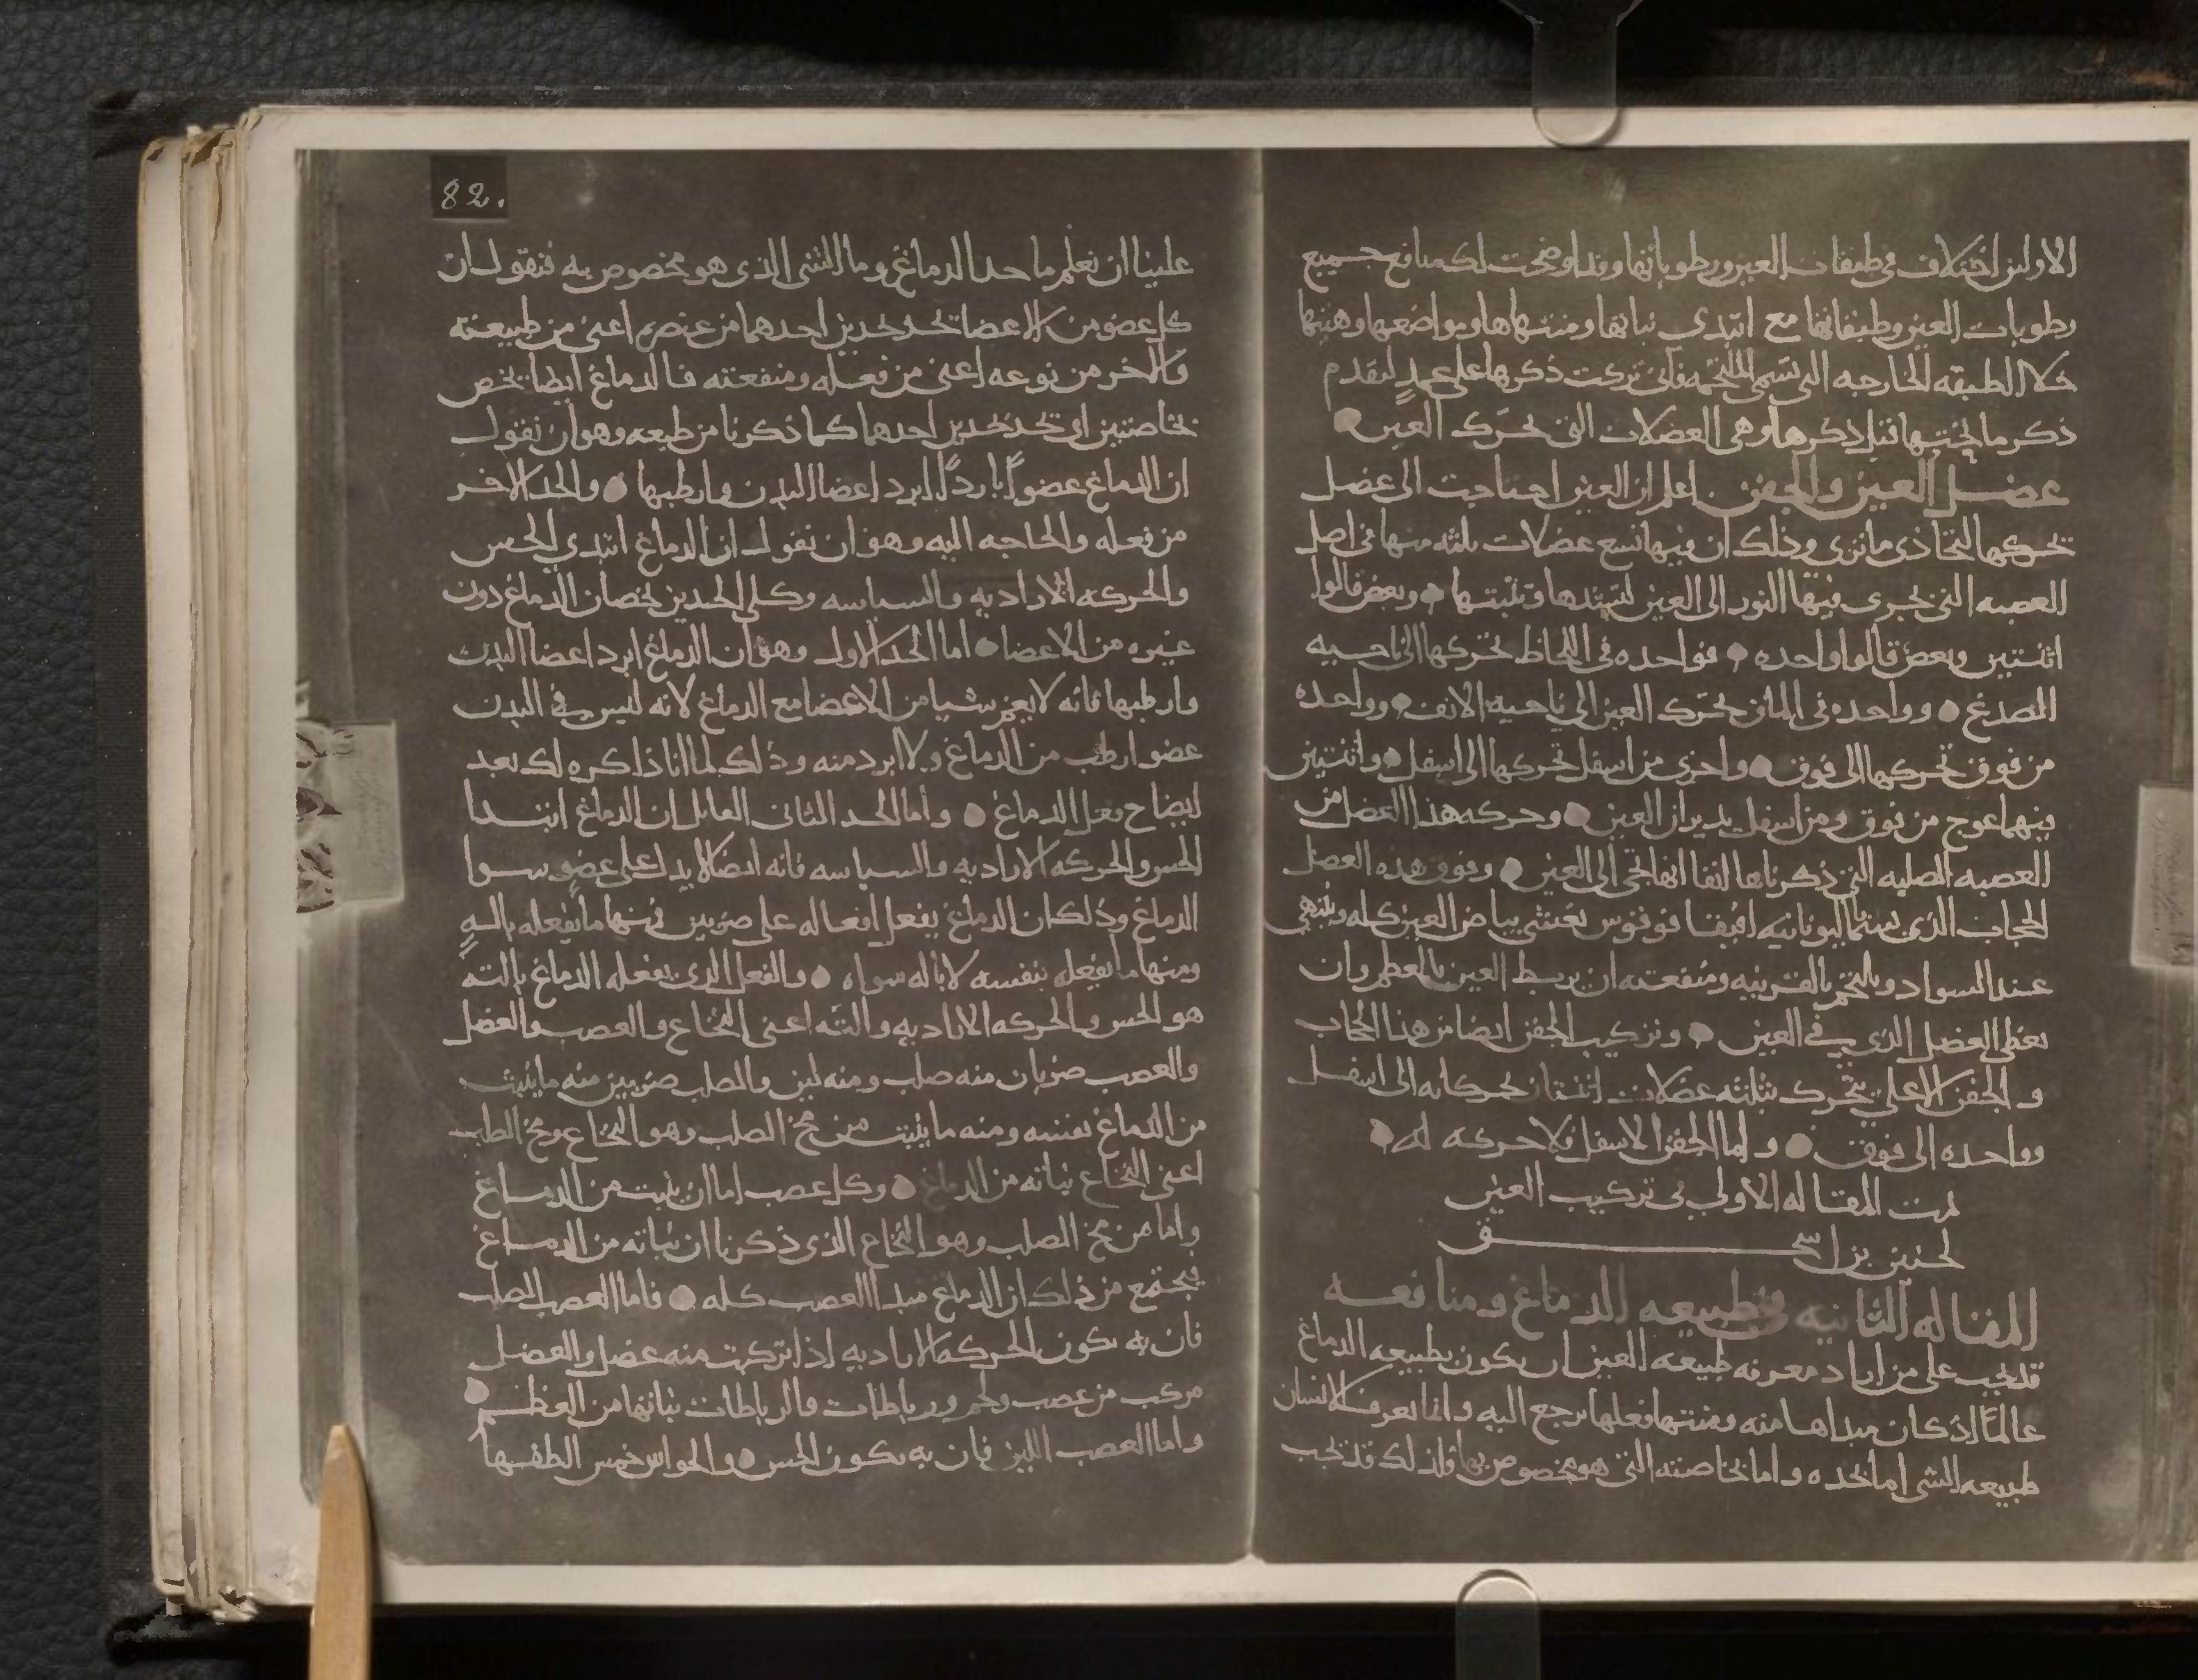 الاولين اختلاف في طبقات العين ورطوباتها وقد اوضحت لك منافع جميع
رطوبات العين وطبقاتها مع ابتدى نباتها ومنتهاها ومواضعها وهيتها
خلا الطبقه الخارجه التى تسمى الملتحمه فانى تركت ذكرها على عمدٍ لتقدم
ذكر ما تحتها قبل ذكرها وهى العضلات التى تحرّك العين
عضل العين والجفن اعلم ان العين احتاجت الى عضل
تحركها لتحاذى ما ترى وذلك ان فيها تسع عضلات ثلثه منها فى اصل
العصبه التى يجرى فيها النور الى العين لتشدها وتثبتها وبعض قالوا
اثنتين وبعض قالوا واحده فواحده فى اللحاظ تحركها الى ناحيه
الصدغ وواحده فى الماق تحرّك العين الى ناحيه الانف وواحده
من فوق تحركها الى فوق واخرى من اسفل تحركها الى اسفل واثنتين
فيهما عوج من فوق ومن اسفل يديران العين وحركه هذا العضل من
العصبه الصلبه التى ذكرناها انفا انها تجى الى العين وفوق هذه العضل
الحجاب الذى يسمى باليونانيه يغشى بياض العين كله وينتهى
عند السواد ويلتحم بالقرنيه ومنفعته ان يربط العين بالعظم وان
يغطى العضل الذى فى العين وتركيب الجفن ايضا من هذا الحجاب
والجفن الاعلى يتحرك بثلثه عضلات اثنتان تحركانه الى اسفل
وواحده الى فوق واما الجفن الاسفل فلا حركه له
تمت المقاله الاولى فى تركيب العين
لحنين بن اسحق
المقاله الثانيه فى طبيعه الدماغ ومنافعه
قد يجب على من اراد معرفه طبيعه العين ان يكون بطبيعه الدماغ
عالمًا اذ كان مبداها منه ومنتها فعلها يرجع اليه وانما يعرف الانسان
طبيعه الشى اما بحده واما بخاصته التى هو مخصوص بها فلذلك قد يجب
82.
علينا ان نعلم ما حد الدماغ وما الشى الذى هو مخصوص به فنقول ان
كل عضو من الاعضا تحد بحدين احدهما من عنصره اعنى من طبيعته
والاخر من نوعه اعنى من فعله ومنفعته فالدماغ ايضا يخص
بخاصتين اى يحد بحدين احدهما كما ذكرنا من طبعه وهو ان نقول
ان الدماغ عضوًا باردًا ابرد اعضا البدن وارطبها والحد الاخر
من فعله والحاجه اليه وهو ان نقول ان الدماغ ابتدى الحس
والحركه الاراديه والسياسه وكلى الحدين يخصان الدماغ دون
غيره من الاعضا اما الحد الاول وهو ان الدماغ ابرد اعضا البدن
وارطبها فانه لا يعم شيا من الاعضا مع الدماغ لانه ليس فى البدن
عضو ارطب من الدماغ ولا ابرد منه وذلك لما انا ذاكره لك بعد
ايضاح فعل الدماغ واما الحد الثانى القايل ان الدماغ ابتدا
الحس والحركه الاراديه والسياسه فانه ايضا لا يدل على عضو سوا
الدماغ وذلك ان الدماغ يفعل افعاله على ضربين فمنها ما يفعله بالهٍ
ومنها ما يفعله بنفسه لا باله سواه والفعل الذى يفعله الدماغ بالته
هو الحس والحركه الاراديه والته اعنى النخاع والعصب والعضل
والعصب ضربان منه صلب ومنه لين والصلب ضربين منه ما ينبت
من الدماغ نفسه ومنه ما ينبت من مخ الصلب وهو النخاع ومخ الصلب
اعنى النخاع نباته من الدماغ وكل عصب اما ان ينبت من الدماغ
واما من مخ الصلب وهو النخاع الذى ذكرنا ان نباته من الدماغ
فيجتمع من ذلك ان الدماغ مبدا العصب كله فاما العصب الصلب
فان به يكون الحركه الاراديه اذا تركبت منه عضل والعضل
مركب من عصب ولحم ورباطات والرباطات نباتها من العظم
واما العصب اللين فان به يكون الحس والحواس خمس الطفها